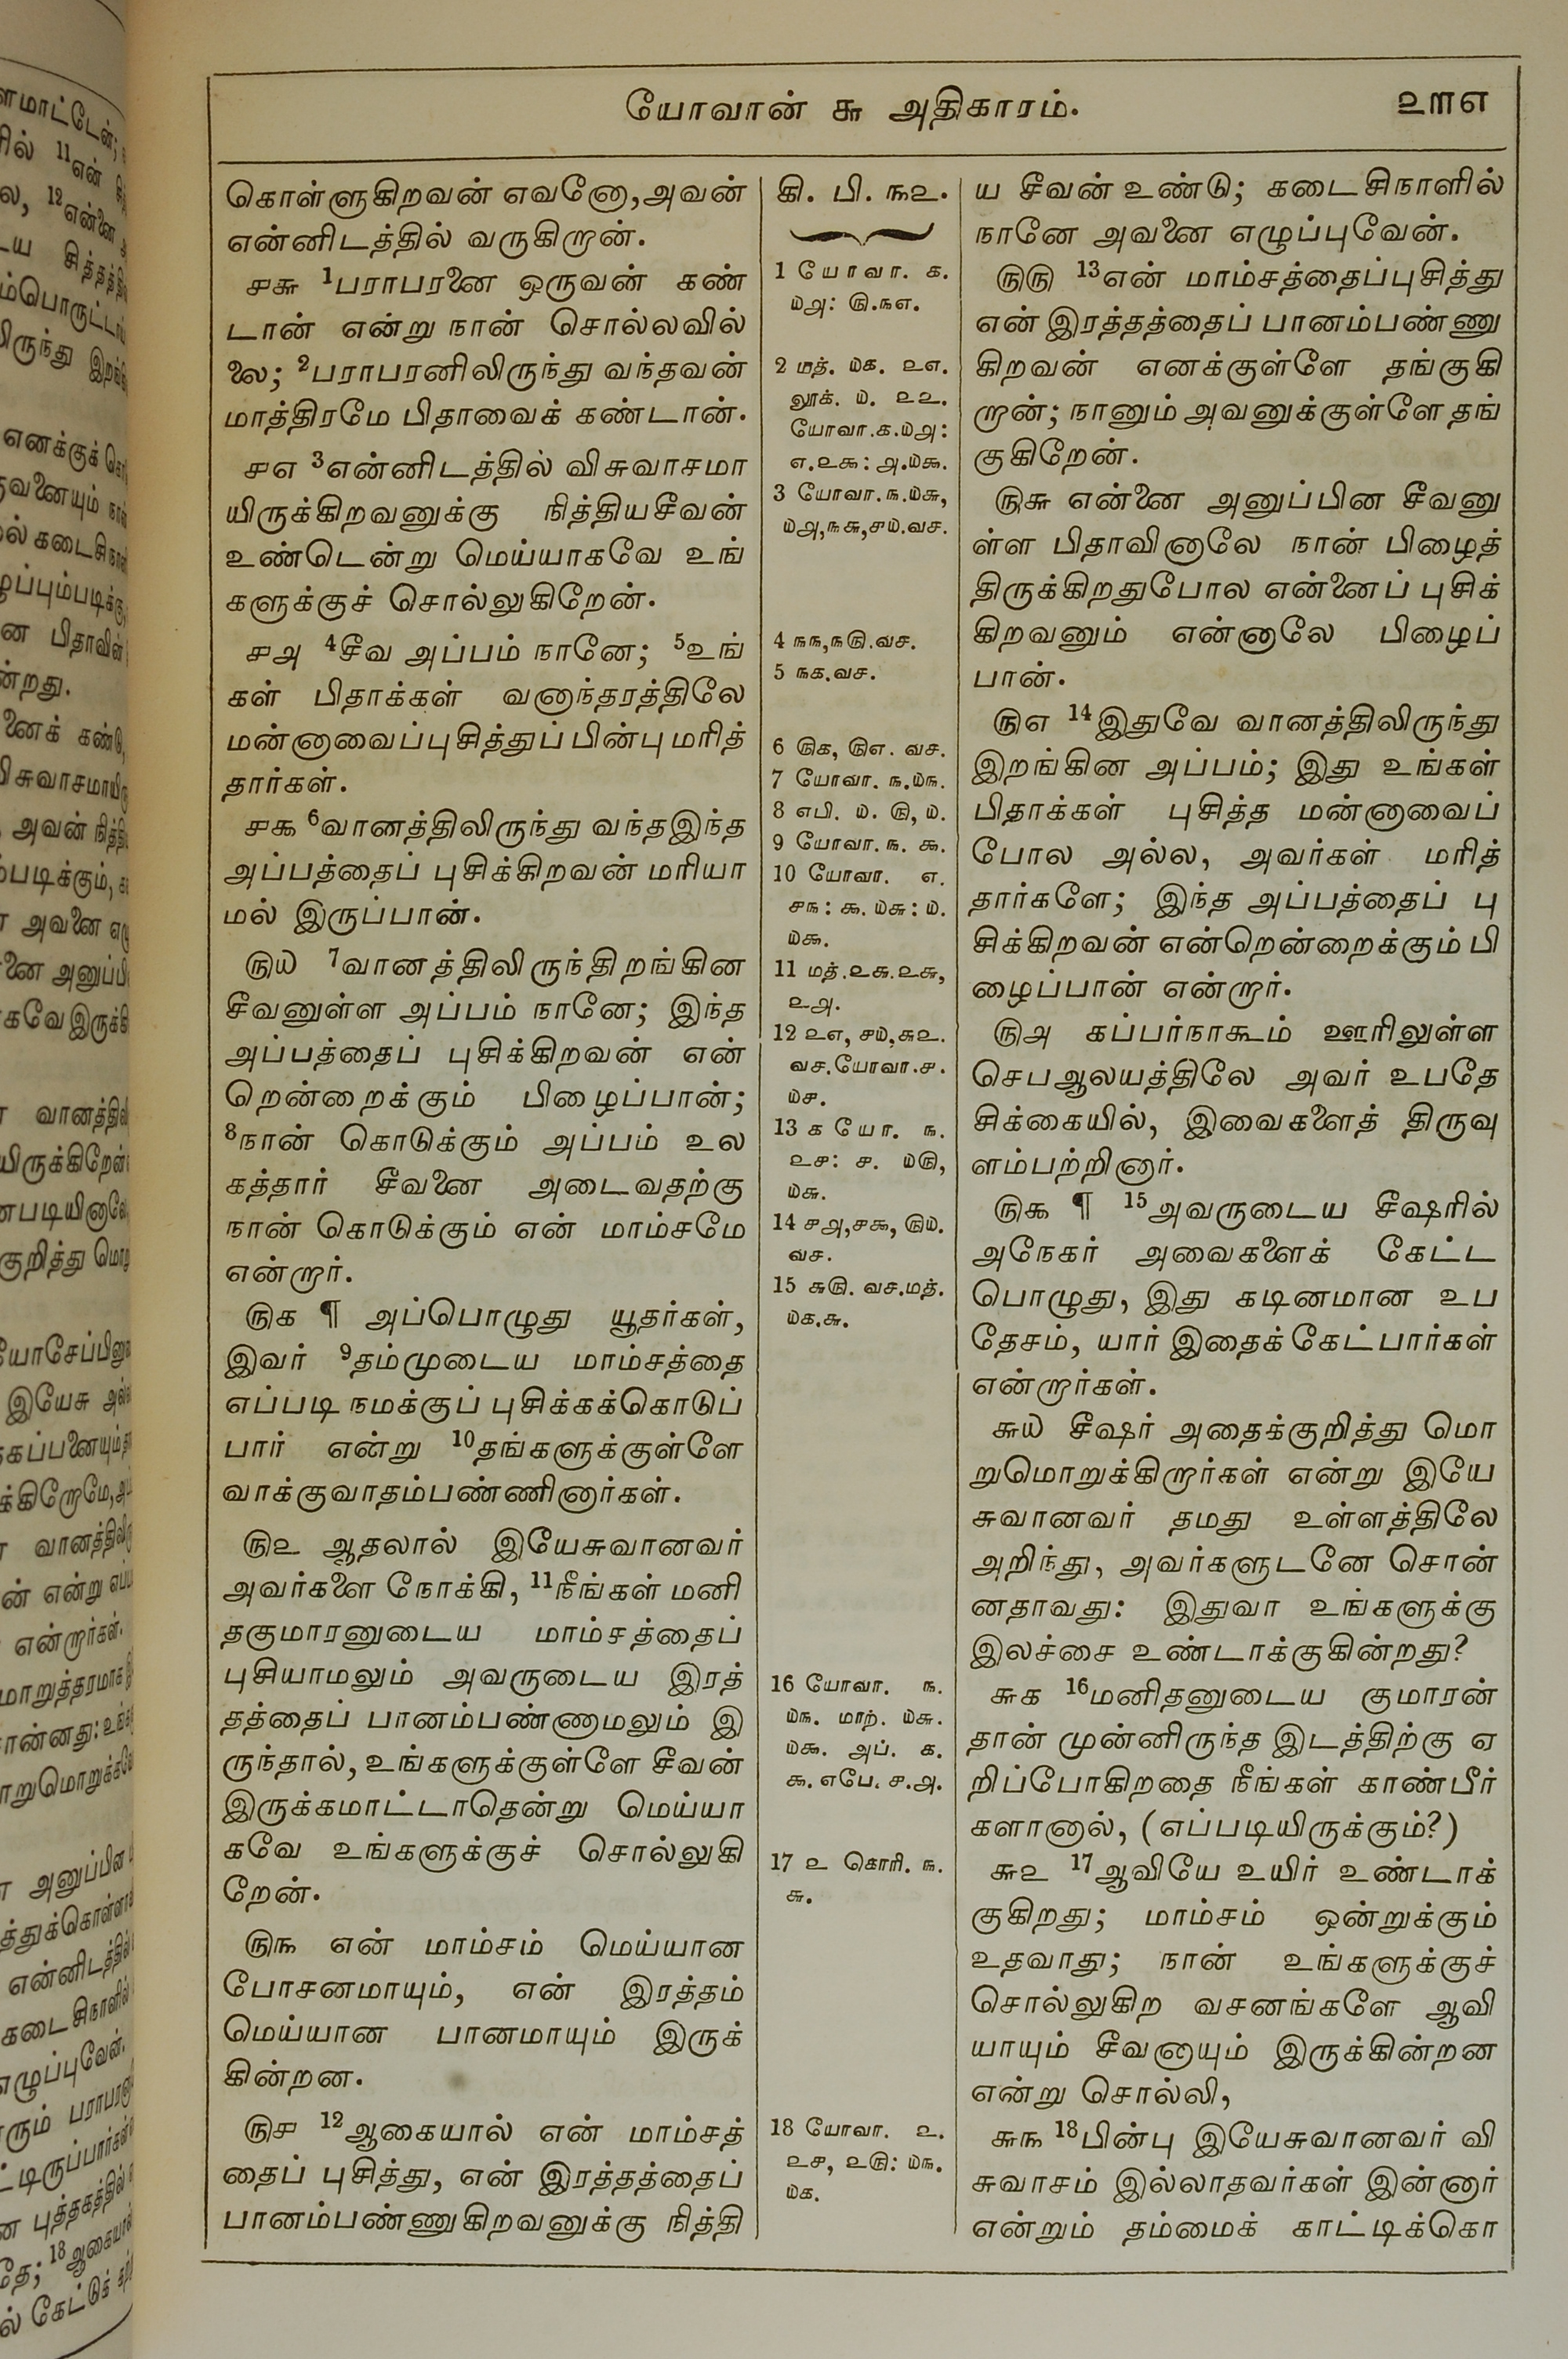 யோவான் ௬ அதிகாரம்.
௨௱௭
கொள்ளுகிறவன் எவனோ, அவன்
என்னிடத்தில் வருகிறான்.
௪௬ 1பராபரனை ஒருவன் கண்
டான் என்று நான் சொல்லவில்
லை; 2பராபரனிலிருந்து வந்தவன்
மாத்திரமே பிதாவைக் கண்டான்.
௪௭ 3என்னிடத்தில் விசுவாசமா
யிருக்கிறவனுக்கு நித்தியசீவன்
உண்டென்று மெய்யாகவே உங்
களுக்குச் சொல்லுகிறேன்.
௪௮ 4சீவ அப்பம் நானே; 5உங்
கள் பிதாக்கள் வனாந்தரத்திலே
மன்னாவைப்புசித்துப் பின்பு மரித்
தார்கள்.
௪௯ 6வானத்திலிருந்து வந்தஇந்த
அப்பத்தைப் புசிக்கிறவன் மரியா
மல் இருப்பான்.
௫௰ 7வானத்திலிருந்திறங்கின
சீவனுள்ள அப்பம் நானே; இந்த
அப்பத்தைப் புசிக்கிறவன் என்
றென்றைக்கும் பிழைப்பான்;
8நான் கொடுக்கும் அப்பம் உல
கத்தார் சீவனை அடைவதற்கு
நான் கொடுக்கும் என் மாம்சமே
என்றார்.
௫௧ ¶ அப்பொழுது யூதர்கள்,
இவர் 9தம்முடைய மாம்சத்தை
எப்படி நமக்குப் புசிக்கக்கொடுப்
பார் என்று 10தங்களுக்குள்ளே
வாக்குவாதம்பண்ணினார்கள்.
௫௨ ஆதலால் இயேசுவானவர்
அவர்களை நோக்கி, 11நீங்கள் மனி
தகுமாரனுடைய மாம்சத்தைப்
புசியாமலும் அவருடைய இரத்
தத்தைப் பானம்பண்ணாமலும் இ
ருந்தால், உங்களுக்குள்ளே சீவன்
இருக்கமாட்டாதென்று மெய்யா
கவே உங்களுக்குச் சொல்லுகி
றேன்.
௫௩ என் மாம்சம் மெய்யான
போசனமாயும், என் இரத்தம்
மெய்யான பானமாயும் இருக்
கின்றன.
௫௪ 12ஆகையால் என் மாம்சத்
தைப் புசித்து, என் இரத்தத்தைப்
பானம்பண்ணுகிறவனுக்கு நித்தி
கி. பி. ௩௨.
1 யோவா. ௧.
௰௮: ௫.௩௭.
2 மத். ௰௧. ௨௭.
லூக். ௰. ௨௨.
யோவா.௧.௰௮:
௭.௨௯: ௮.௰௯.
3 யோவா.௩.௰௬,
௰௮,௩௬,௪௰.வச.
4 ௩௩,௩௫.வச.
5 ௩௧.வச.
6 ௫௧, ௫௭. வச.
7 யோவா. ௩.௰௩.
8 எபி. ௰. ௫, ௰.
9 யோவா. ௩. ௯.
10 யோவா. ௭.
௪௩: ௯. ௰௬: ௰.
௰௯.
11 மத்.௨௬.௨௬,
௨௮.
12 ௨௭, ௪௰,௬௨.
வச.யோவா.௪.
௰௪.
13 ௧ யோ. ௩.
௨௪: ௪. ௰௫,
௰௬.
14 ௪௮,௪௯, ௫௰.
வச.
15 ௬௫. வச.மத்.
௰௧.௬.
16 யோவா. ௩.
௰௩. மாற். ௰௬.
௰௯. அப். ௧.
௯. எபே. ௪.௮.
17 ௨ கொரி. ௩.
௬.
18 யோவா. ௨.
௨௪, ௨௫: ௰௩.
௰௧.
ய சீவன் உண்டு; கடைசிநாளில்
நானே அவனை எழுப்புவேன்.
௫௫ 13என் மாம்சத்தைப்புசித்து
என் இரத்தத்தைப் பானம்பண்ணு
கிறவன் எனக்குள்ளே தங்குகி
றான்; நானும் அவனுக்குள்ளே தங்
குகிறேன்.
௫௬ என்னை அனுப்பின சீவனு
ள்ள பிதாவினாலே நான் பிழைத்
திருக்கிறதுபோல என்னைப் புசிக்
கிறவனும் என்னாலே பிழைப்
பான்.
௫௭ 14இதுவே வானத்திலிருந்து
இறங்கின அப்பம்; இது உங்கள்
பிதாக்கள் புசித்த மன்னாவைப்
போல அல்ல, அவர்கள் மரித்
தார்களே; இந்த அப்பத்தைப் பு
சிக்கிறவன் என்றென்றைக்கும் பி
ழைப்பான் என்றார்.
௫௮ கப்பர்நாகூம் ஊரிலுள்ள
செபஆலயத்திலே அவர் உபதே
சிக்கையில், இவைகளைத் திருவு
ளம்பற்றினார்.
௫௯ ¶ 15அவருடைய சீஷரில்
அநேகர் அவைகளைக் கேட்ட
பொழுது, இது கடினமான உப
தேசம், யார் இதைக் கேட்பார்கள்
என்றார்கள்.
௬௰ சீஷர் அதைக்குறித்து மொ
றுமொறுக்கிறார்கள் என்று இயே
சுவானவர் தமது உள்ளத்திலே
அறிந்து, அவர்களுடனே சொன்
னதாவது: இதுவா உங்களுக்கு
இலச்சை உண்டாக்குகின்றது?
௬௧ 16மனிதனுடைய குமாரன்
தான் முன்னிருந்த இடத்திற்கு ஏ
றிப்போகிறதை நீங்கள் காண்பீர்
களானால், (எப்படியிருக்கும்?)
௬௨ 17ஆவியே உயிர் உண்டாக்
குகிறது; மாம்சம் ஒன்றுக்கும்
உதவாது; நான் உங்களுக்குச்
சொல்லுகிற வசனங்களே ஆவி
யாயும் சீவனாயும் இருக்கின்றன
என்று சொல்லி,
௬௩ 18பின்பு இயேசுவானவர் வி
சுவாசம் இல்லாதவர்கள் இன்னார்
என்றும் தம்மைக் காட்டிக்கொ